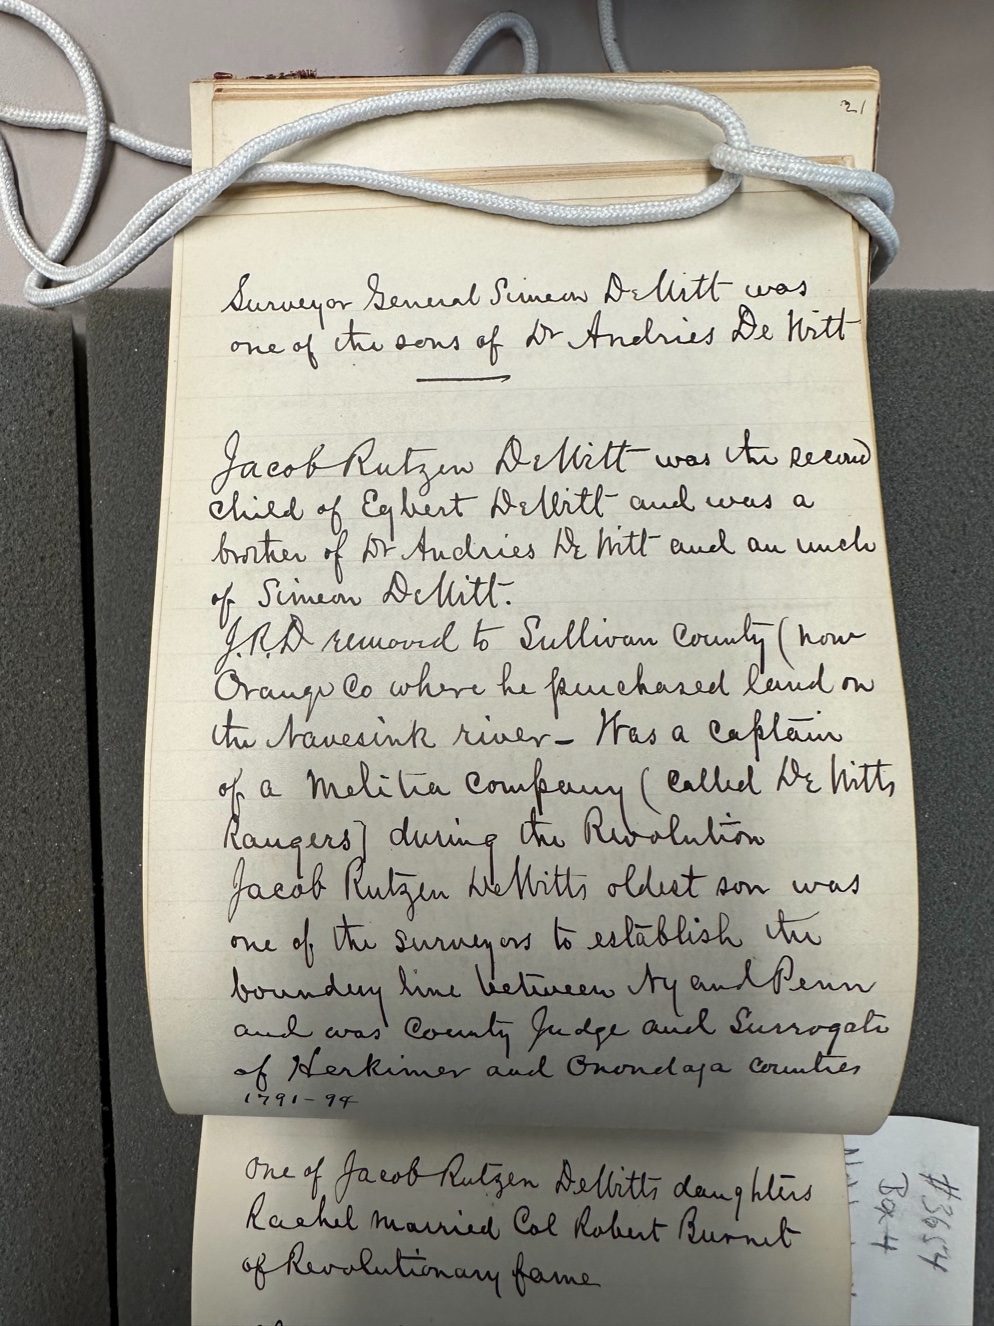 21
Surveyor General Simeon DeWitt was
one of the sons of Dr Andries De Witt
Jacob Rutzen DeWitt was the second
child of Egbert DeWitt and was a
brother of Dr Andries De Witt and an uncle
of Simeon DeWitt.
J.R.D removed to Sullivan County (now
Orange Co where he purchased land on
the Navesink river - Was a captain
of a Melitia company (called De Witts
Rangers) during the Revolution
Jacob Rutzen DeWitts oldest son was
one of the surveyors to establish the
boundry line between Ny and Penn
and was County Judge and Surrogate
of Herkimer and Onondaga counties
1791-94
One of Jacob Rutzen DeWitts daughters
Rachel married Col Robert Burnet
of Revolutionary fame
#3654
Box 4